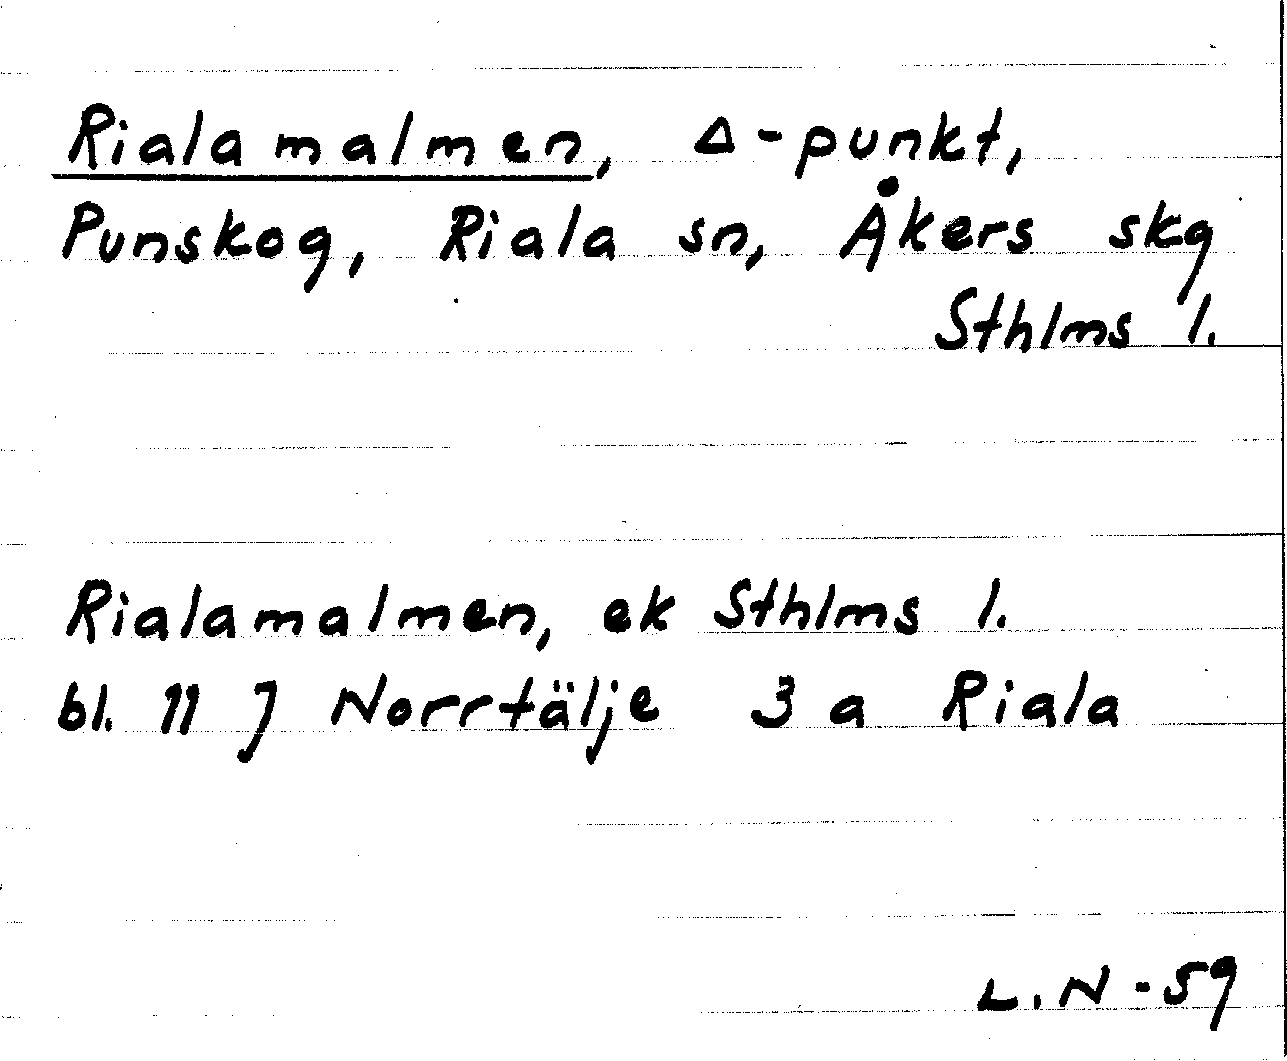 Rialamalmen, Δ-punkt,
Punskog, Riala sn, Åkers skg
Sthlms l.
Rialamalmen, ek Sthlms l.
bl. 11 J Norrtälje 3 a Riala
L.N - 59